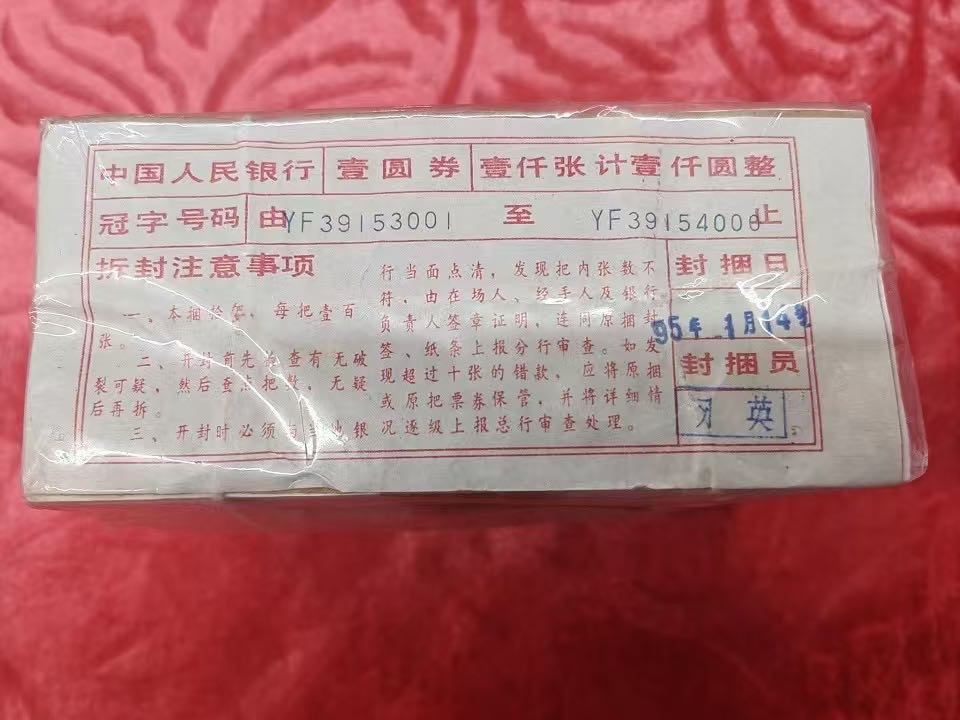 中国人民银行 壹圆券 壹仟张计壹仟圆整
冠字号码 由YF39153001 至 YF39154000止
拆封注意事项
一、本捆拾把，每把壹百
张。
二、开封首先检查有无破
裂可疑，然后查点把数，无疑
后再拆。
三、开封时必须与当地银
行当面点清，发现把内张数不
符，由在场人、经手人及银行
负责人签章证明，连同原捆封
签、纸条上报分行审查。如发
现超过十张的错款，应将原捆
或原把票券保管，并将详细情
况逐级上报总行审查处理。
封捆日
95年1月14
封捆员
英